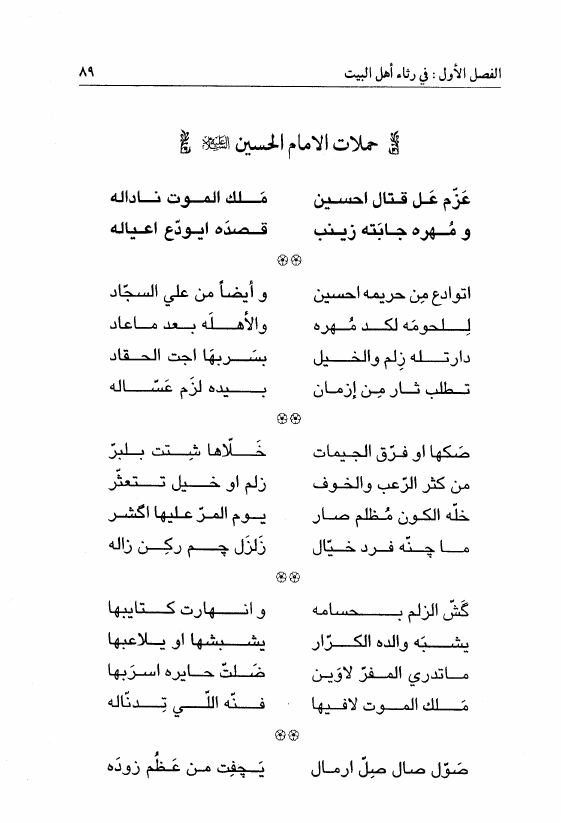 الفصل الأول : في رثاء أهل البيت ٨٩
حملات الامام الحسين
عَزّم عَـل قتـال احسـين مَـلك المـوت نـاداله
و مُـهره جـابَته زينب قـصدَه ايـودّع اعيـاله
اتوادع مِن حريمه احسين و أيضاً من علي السجّاد
لِـلحومَه لكـد مُـهره والأهـلَه بعد مـاعاد
دارتـله زلم والخـيل بسَـربهَا اجت الحـقاد
تـطلب ثـار مِـن إزمـان بـيده لزَم عَسّـاله
صَكها او فرّق الجيمات خَـلّاها شِـتت بلبرّ
من كثر الرّعب والخـوف زلم او خـيل تـتعثّر
خلّه الكـون مُـظلم صـار يـوم المـرّ عليها اگشـر
مـا چـنّه فـرد خيّـال زَلزَل چـم ركِـن زاله
كَشّ الزلم بـحسامه و انـهارت كـتايبها
يشـبَه والده الكـرّار يشـبشها او يـلاعبها
مـاتدري المـفرّ لاوَيـن ضَـلتّ حـايره اسـرَبها
مَـلك المـوت لافـيها فـنّه اللّـي تِـدنّاله
صَوّل صال صِلّ ارمـال يَـچفِت مـن عَـظُم زودَه